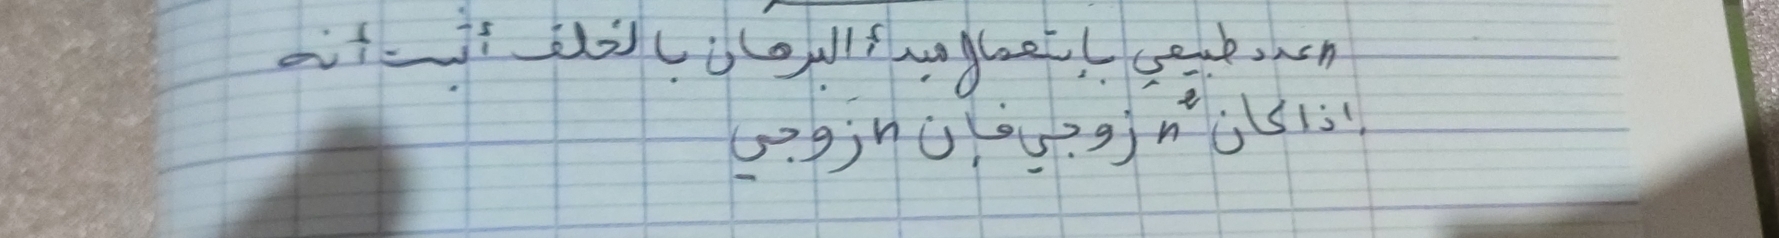 n عدد طبيعي باستعمال مبدأ البرهان بالخلف أثبت أنه
اذا كان n² زوجي فإن n زوجي